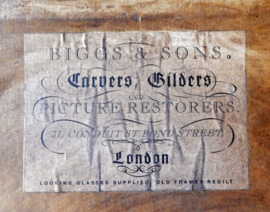 BIGGS & SONS.
Carvers, Gilders
AND
PICTURE RESTORERS.
31, CONDUIT ST. BOND STREET.
London
LOOKING GLASSES SUPPLIED, OLD FRAMES REGILT